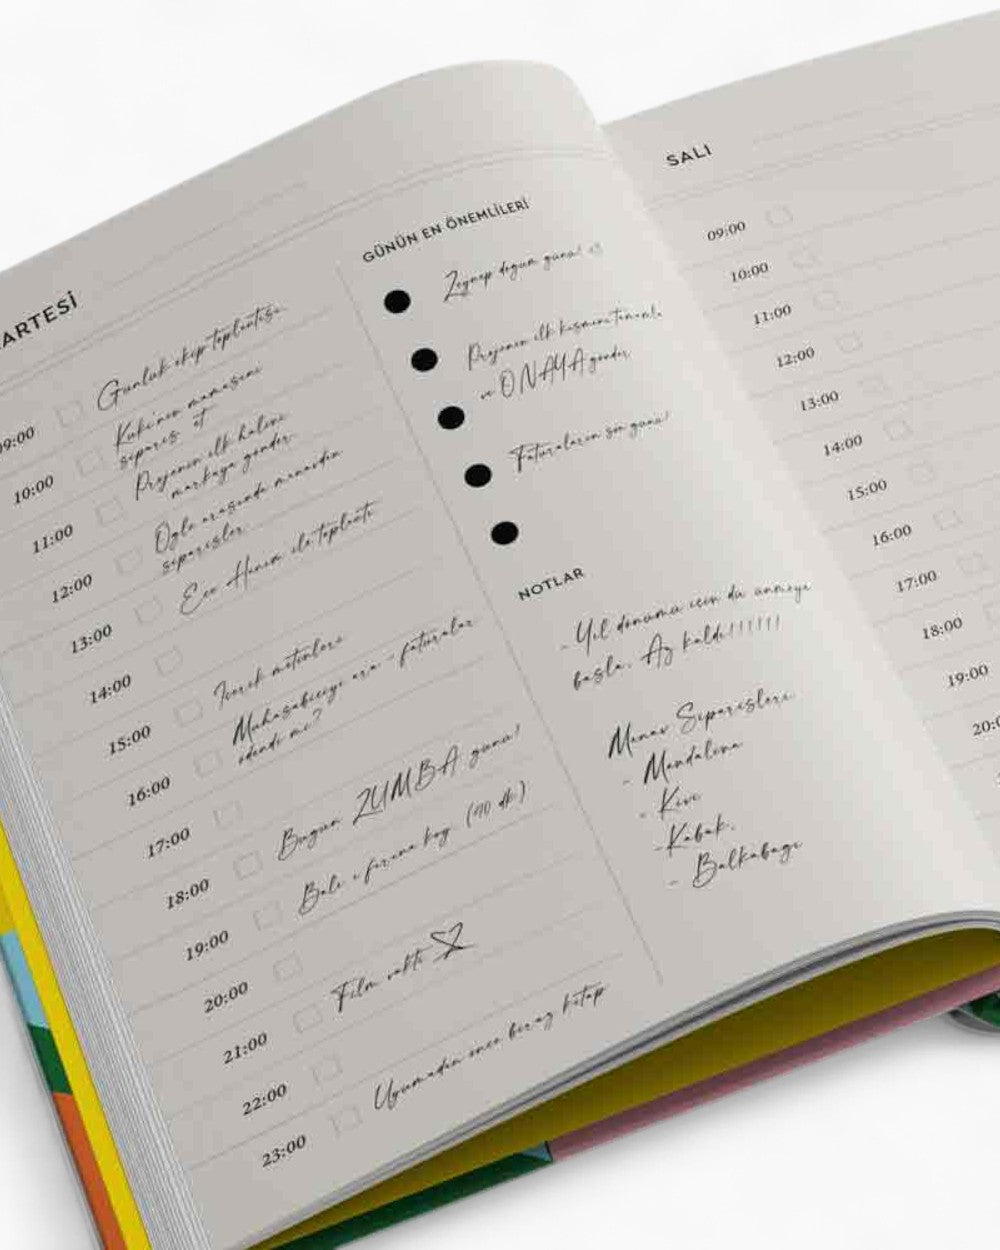 ARTESİ
09:00 Günlük ekip toplantısı
10:00 Kuki'nin mamasını
sipariş et
11:00 Projenin ilk halini
markaya gönder
12:00 Öğle arasında manavdan
siparişler
13:00 Ece Hanım ile toplantı
14:00
15:00 İçerik metinleri
16:00 Muhasebeciyi ara - faturalar
ödendi mi?
17:00
18:00 Bugün ZUMBA günü!
19:00 Balı fırına koy (40 dk)
20:00
21:00 Film vakti
22:00
23:00 Uyumadan önce biraz kitap
GÜNÜN EN ÖNEMLİLERİ
Zeynep doğum günü!
Projenin ilk kısmını tamamla
ve ONAYA gönder
Faturaların son günü!
NOTLAR
- Yıl dönümü için dü anmaya
başla. Az kaldı!!!!!!!
Manav Siparişleri
- Mandalina
- Kivi
- Kabak.
- Balkabağı
SALI
09:00
10:00
11:00
12:00
13:00
14:00
15:00
16:00
17:00
18:00
19:00
20:0